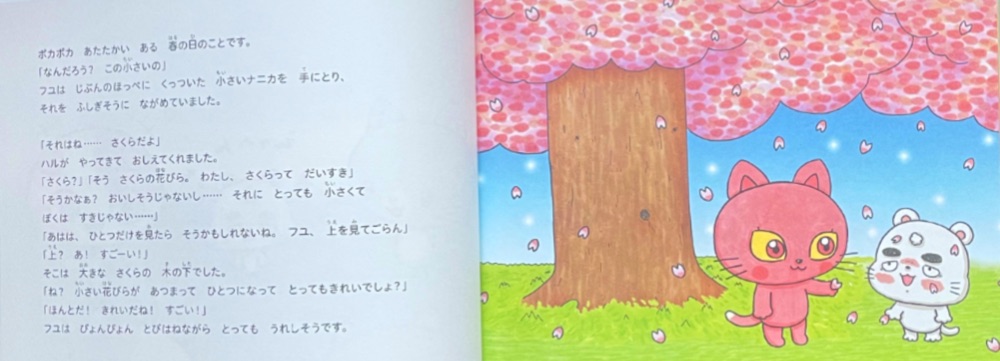 ポカポカ　あたたかい　ある　春の日のことです。
「なんだろう？　この小さいの」
フユは　じぶんのほっぺに　くっついた　小さいナニカを　手にとり、
それを　ふしぎそうに　ながめていました。
「それはね……　さくらだよ」
ハルが　やってきて　おしえてくれました。
「さくら？」「そう　さくらの花びら。わたし、さくらって　だいすき」
「そうかなぁ？　おいしそうじゃないし……　それに　とっても　小さくて
ぼくは　すきじゃない……」
「あはは、ひとつだけを見たら　そうかもしれないね。フユ、上を見てごらん」
「上？　あ！　すごーい！」
そこは　大きな　さくらの　木の下でした。
「ね？　小さい花びらが　あつまって　ひとつになって　とってもきれいでしょ？」
「ほんとだ！　きれいだね！　すごい！」
フユは　ぴょんぴょん　とびはねながら　とっても　うれしそうです。